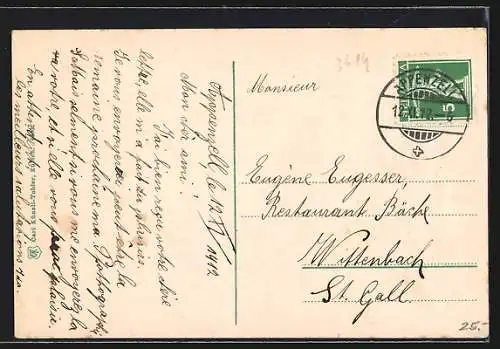 Appenzell, le 12/II 1912
Mon cher ami!
J'ai bien reçu votre chère
lettre, elle m'a fait du plaisir.
Je vous enverrai peut-être la
semaine prochaine ma Photograph.
Mais vous m'enverrez la
votre et si elle vous plaira.
En attendant
les meilleurs salutations
Monsieur
Eugène Eugesser,
Restaurant Bäche
Wittenbach
St. Gall.
APPENZELL
5
3614
25.-